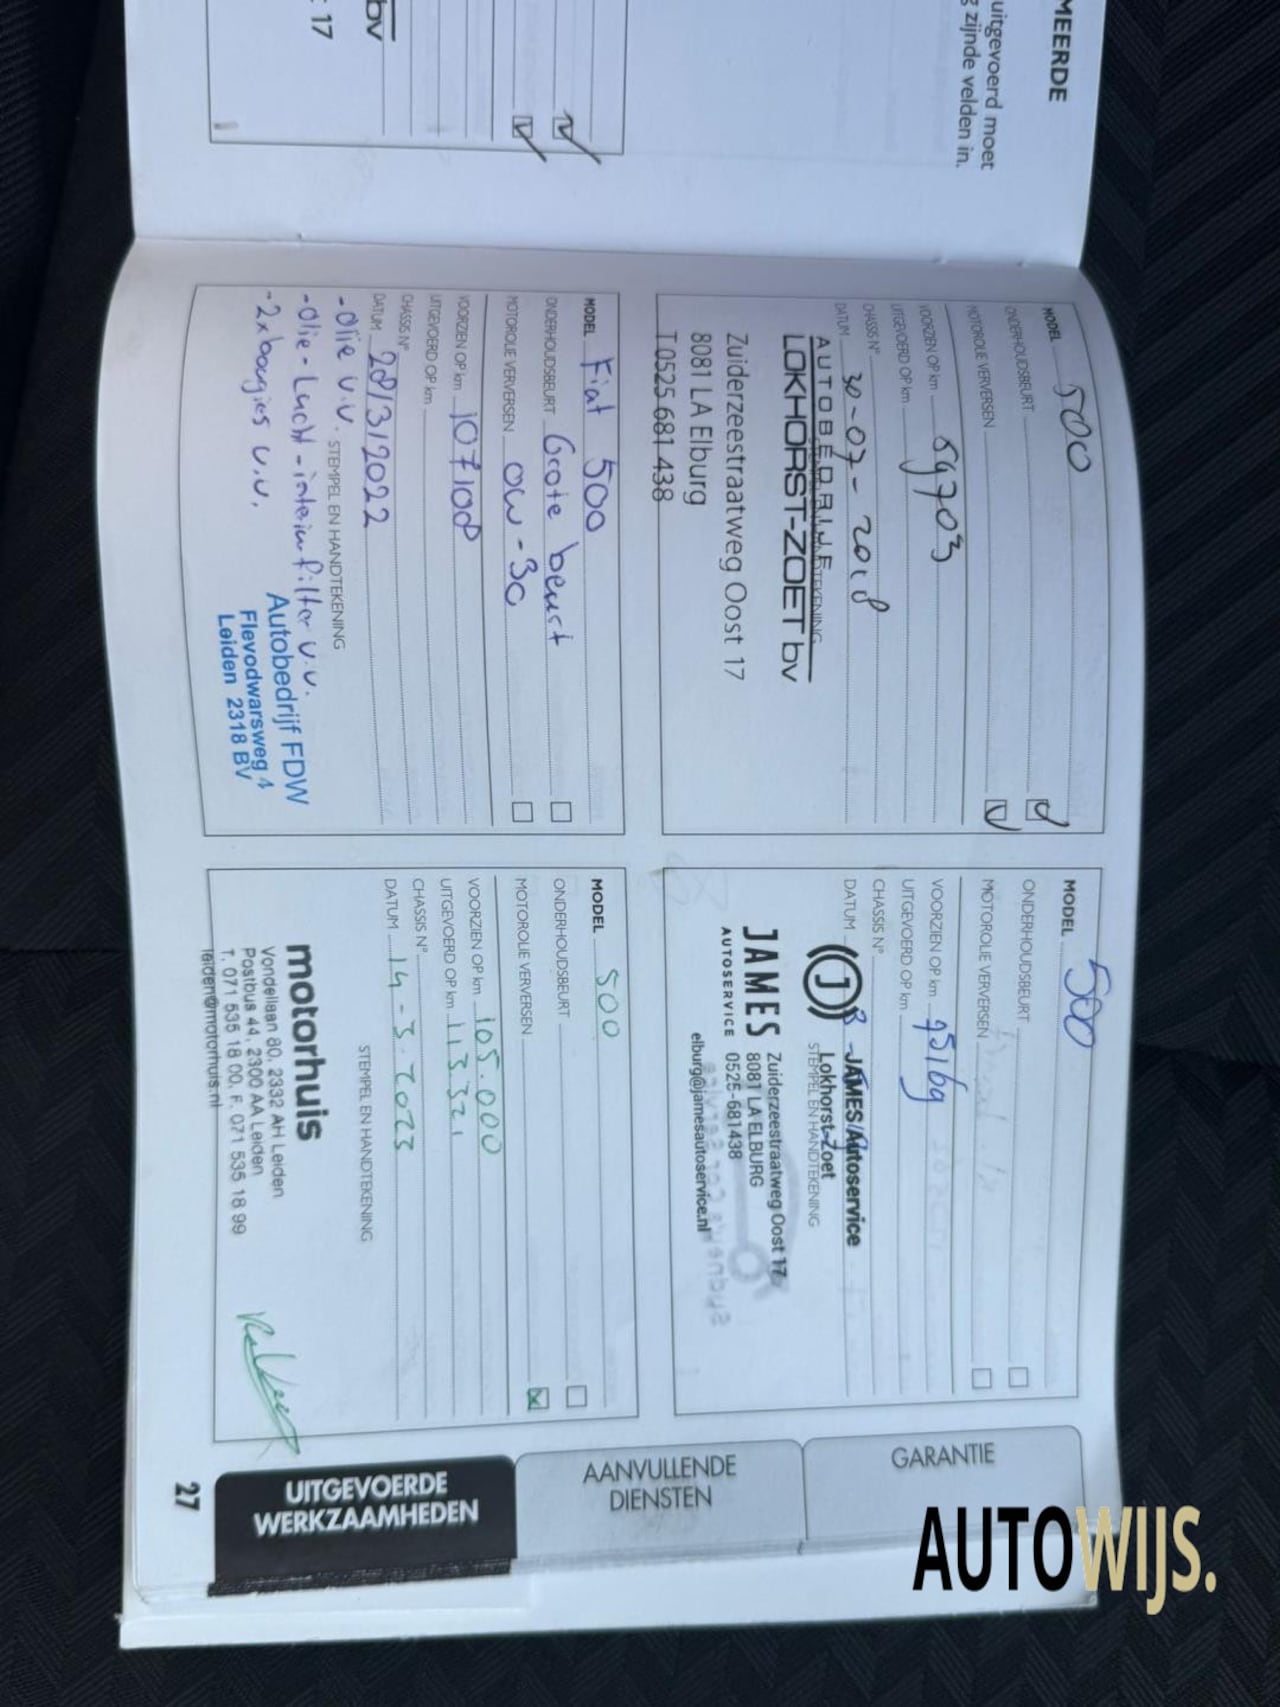 MEERDE
uitgevoerd moet
zijnde velden in.
bv
17
MODEL 500
ONDERHOUDSBEURT
MOTOROLIE VERVERSEN
VOORZIEN OP km 59703
UITGEVOERD OP km
CHASSIS N°
DATUM 30-07-2018
STEMPEL EN HANDTEKENING
AUTOBEDRIJF
LOKHORST-ZOET bv
Zuiderzeestraatweg Oost 17
8081 LA Elburg
T 0525 681 438
MODEL 500
ONDERHOUDSBEURT
MOTOROLIE VERVERSEN
VOORZIEN OP km 95169
UITGEVOERD OP km
CHASSIS N°
DATUM
STEMPEL EN HANDTEKENING
J
JAMES Autoservice
Lokhorst-Zoet
JAMES
AUTOSERVICE
Zuiderzeestraatweg Oost 17
8081 LA ELBURG
0525-681438
elburg@jamesautoservice.nl
MODEL Fiat 500
ONDERHOUDSBEURT Grote beurt
MOTOROLIE VERVERSEN 0W-30
VOORZIEN OP km 107108
UITGEVOERD OP km
CHASSIS N°
DATUM 28/3/2022
STEMPEL EN HANDTEKENING
-Olie v.v.
-Olie-Lucht-interieurfilter v.v.
-2x bougies v.v.
Autobedrijf FDW
Flevodwarsweg 1
Leiden 2318 BV
MODEL 500
ONDERHOUDSBEURT
MOTOROLIE VERVERSEN
VOORZIEN OP km 105.000
UITGEVOERD OP km 113.321
CHASSIS N°
DATUM 14-3-2023
STEMPEL EN HANDTEKENING
motorhuis
Vondellaan 80, 2332 AH Leiden
Postbus 44, 2300 AA Leiden
T. 071 535 18 00, F. 071 535 18 99
leiden@motorhuis.nl
GARANTIE
AANVULLENDE
DIENSTEN
UITGEVOERDE
WERKZAAMHEDEN
27
AUTOWIJS.